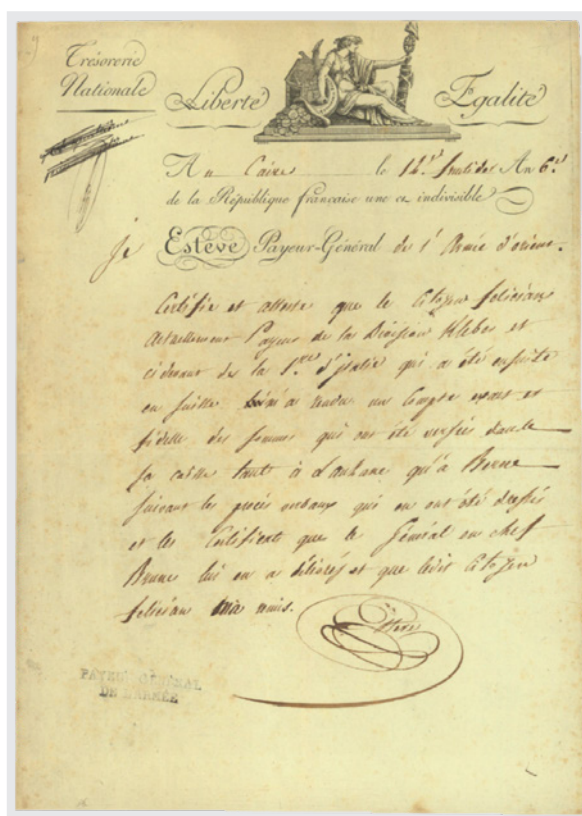 Trésorerie
Nationale
Liberté
Egalité
Au Caire le 14 fructidor An 6
de la République française une et indivisible
Je Estève Payeur-Général de l'Armée d'orient.
Certifie et atteste que le Citoyen feliciau
Actuellement Payeur de la Division Kleber et
cidevant de la 1.re d'italie qui a été ensuite
en suisse m'a rendu un Compte exact et
fidelle des sommes qui ont été versées dans
sa caisse tant à Lauzane qu'à Berne
suivant les procès verbaux qui en ont été dressés
et les Certificats que le Général en chef
Brune lui en a délivrés et que ledit Citoyen
m'a remis.
Esteve
PAYEUR GÉNÉRAL
DE L'ARMÉE